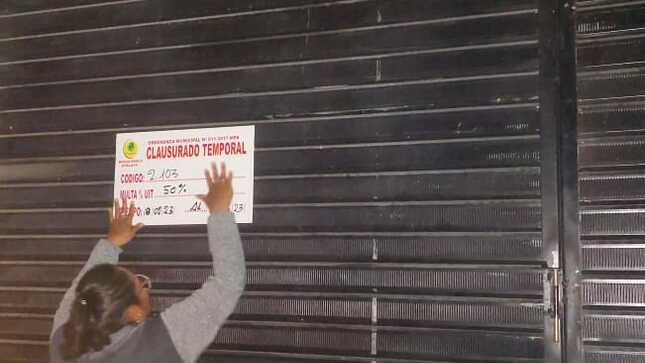 ORDENANZA MUNICIPAL N° 011-2017-MPA
CLAUSURADO TEMPORAL
CÓDIGO: 2.103
MULTA % UIT 50%
18/02/23 AL 23